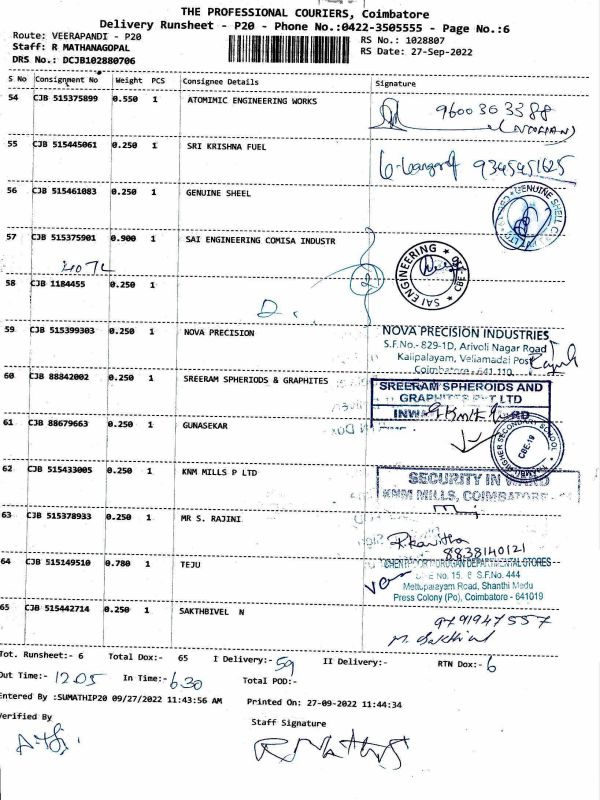 THE PROFESSIONAL COURIERS, Coimbatore
Delivery Runsheet - P20 - Phone No.:0422-3505555 - Page No.:6
Route: VEERAPANDI - P20
RS No.: 1028807
Staff: R MATHANAGOPAL
RS Date: 27-Sep-2022
DRS No.: DCJB102880706
S No Consignment No Weight PCS Consignee Details Signature
54 CJB 515375899 0.550 1 ATOMIMIC ENGINEERING WORKS
9600303388
55 CJB 515445061 0.250 1 SRI KRISHNA FUEL
9345451625
56 CJB 515461083 0.250 1 GENUINE SHEEL
GENUINE SHELL
57 CJB 515375901 0.900 1 SAI ENGINEERING COMISA INDUSTR
SAI ENGINEERING
58 CJB 1184455 0.250 1
59 CJB 515399303 0.250 1 NOVA PRECISION
NOVA PRECISION INDUSTRIES
S.F.No.- 829-1D, Arivoli Nagar Road
Kalipalayam, Vellamadai Post
Coimbatore - 641 110
60 CJB 88842002 0.250 1 SREERAM SPHERIODS & GRAPHITES
SREERAM SPHEROIDS AND
GRAPHITES PVT LTD
61 CJB 88679663 0.250 1 GUNASEKAR
HIGHER SECONDARY SCHOOL
CBE-19
62 CJB 515433005 0.250 1 KNM MILLS P LTD
SECURITY IN WARD
KNM MILLS, COIMBATORE
63 CJB 515378933 0.250 1 MR S. RAJINI
8838140121
64 CJB 515149510 0.780 1 TEJU
DEPARTMENTAL STORES
S.F.No. 444
Mettupalayam Road, Shanthi Medu
Press Colony (Po), Coimbatore - 641019
65 CJB 515442714 0.250 1 SAKTHBIVEL N
9791947557
M. Sakthivel
Tot. Runsheet:- 6 Total Dox:- 65 I Delivery:- 59 II Delivery:- RTN Dox:- 6
Out Time:- 12.05 In Time:- 6.30 Total POD:-
Entered By :SUMATHIP20 09/27/2022 11:43:56 AM Printed On: 27-09-2022 11:44:34
Verified By
Staff Signature